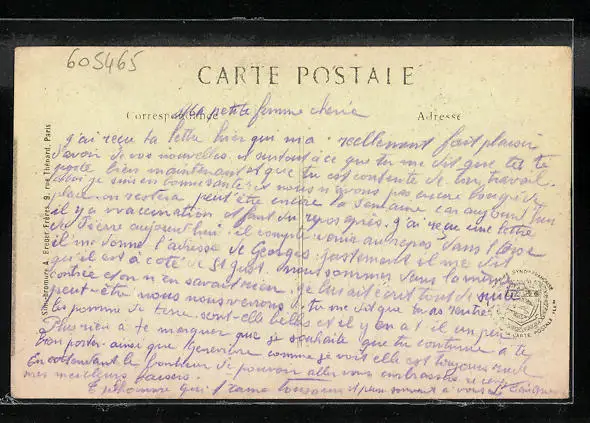 605465
CARTE POSTALE
Correspondance
Adresse
Ma petite femme chérie
j'ai reçu ta lettre hier qui m'a réellement fait plaisir
d'avoir de vos nouvelles. et surtout à ce que tu me dit que tes te
porte bien maintenant et que tu est contente de ton travail.
moi je suis en bonne santé et nous n'avons pas encore bougé de
place on restera peut être encore la semaine. car aujourd'hui
il y a vaccination et faut du repos après. j'ai reçu une lettre
de Pierre aujourd'hui. il compte venir au repos dans l'Oise
il me donne l'adresse de Georges. justement il me dit
qu'il est à côté de St Just. nous sommes dans la même
contrée et on n'en savait rien. je lui ait écrit tout de suite
peut-être nous nous verrons. tu me dit que tu as rentré
les pomme de terre. sont elle belles et il y en a t il un peu
Plus rien a te marquer que je souhaite que tu continue a te
bien porter ainsi que Geneviève comme je vois elle est toujours
En attendant le bonheur de pouvoir aller vous embrasser je
mes meilleurs baisers.
Ton homme qui t'aime toujours et pense souvent à vous
Simi-bromure A. Breger Frères, 9, rue Thénard, Paris